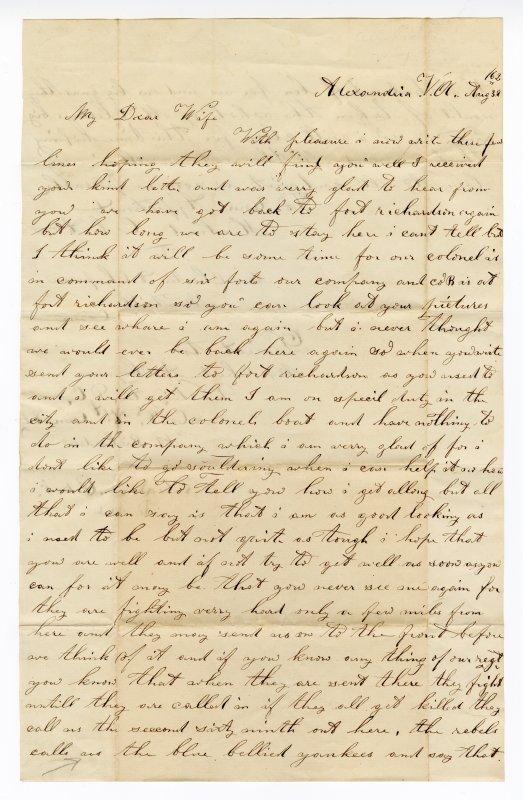 162
Alexandria V.A. Aug 31
My Dear Wife
With pleasure i now write these few
lines hoping they will find you well I received
your kind letter and was verry glad to hear from
you we have got back to fort richardson again
but how long we are to stay here i cant tell but
I think it will be some time for our colonel is
in command of six forts our company and co B is at
fort richardson so you can look at your pictures
and see whare i am again but i never thought
we would ever be back here again so when you write
send your letters to fort richardson as you used to
and i will get them I am on speciel duty in the
city and in the colonels boat and have nothing to
do in the company which i am verry glad of for i
dont like to go souldering when i can help it
i would like to tell you how i get allong but all
that i can say is that i am as good looking as
i used to be but not quite as tough i hope that
you are well and if not try to get well as soon as you
can for it may be that you never see me again for
they are fighting verry hard only a few miles from
here and they may send us on to the front before
we think of it and if you know any thing of our regt
you know that when they are sent there they fight
untill they are called in if they all get killed they
call us the seccond sixty ninth out here, the rebels
calls us the blue bellied yankees and say that